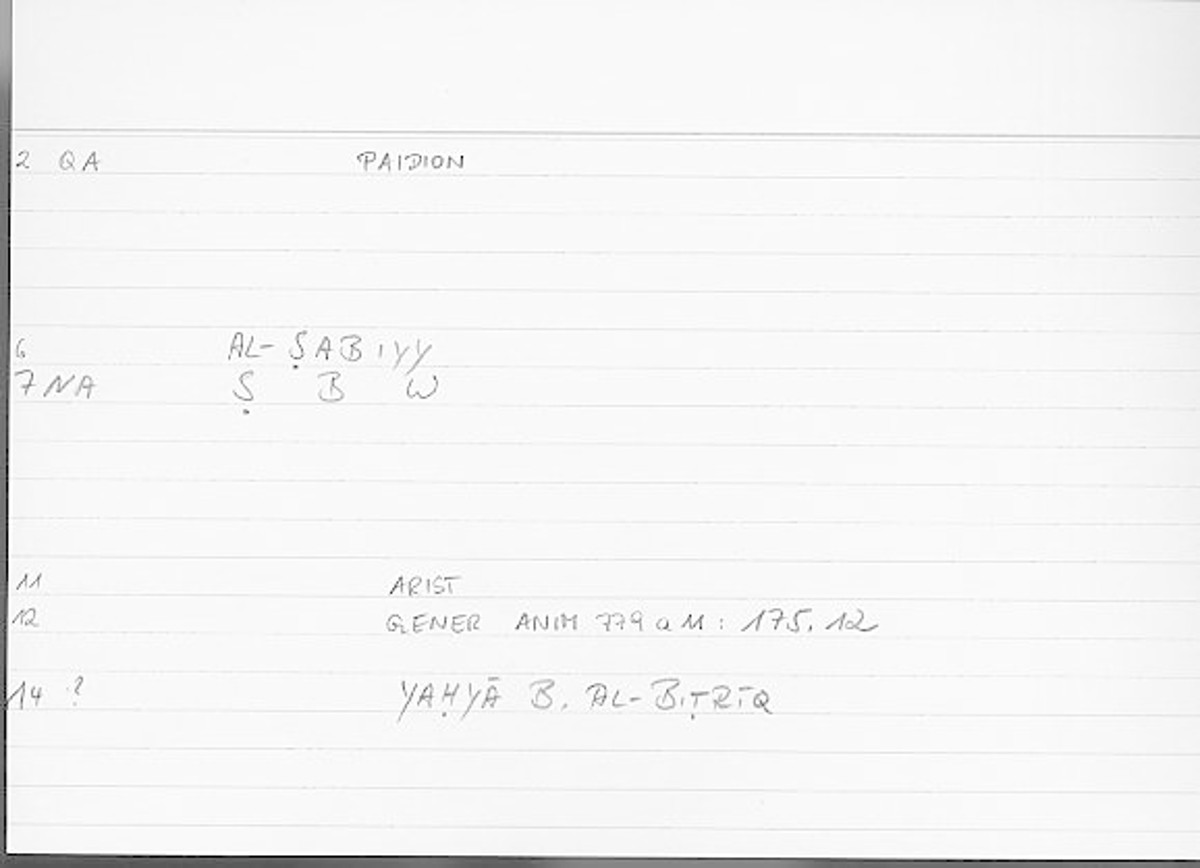 2 QA PAIDION
6 AL-ṢABIYY
7 NA Ṣ B W
11 ARIST
12 GENER ANIM 779 a 11 : 175.12
14 ? YAḤYĀ B. AL-BIṬRĪQ